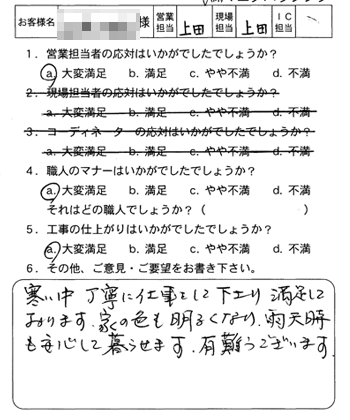 お客様名 様 営業担当 上田 現場担当 上田 IC担当
1．営業担当者の応対はいかがでしたでしょうか？
a. 大変満足 b. 満足 c. やや不満 d. 不満
2．現場担当者の応対はいかがでしたでしょうか？
a. 大変満足 b. 満足 c. やや不満 d. 不満
3．コーディネーターの応対はいかがでしたでしょうか？
a. 大変満足 b. 満足 c. やや不満 d. 不満
4．職人のマナーはいかがでしたでしょうか？
a. 大変満足 b. 満足 c. やや不満 d. 不満
それはどの職人でしょうか？（ ）
5．工事の仕上がりはいかがでしたでしょうか？
a. 大変満足 b. 満足 c. やや不満 d. 不満
6．その他、ご意見・ご要望をお書き下さい。
寒い中 丁寧に仕事をして下さり 満足して
おります。家の色も明るくなり、雨天時
も安心して暮らせます。有難うございます